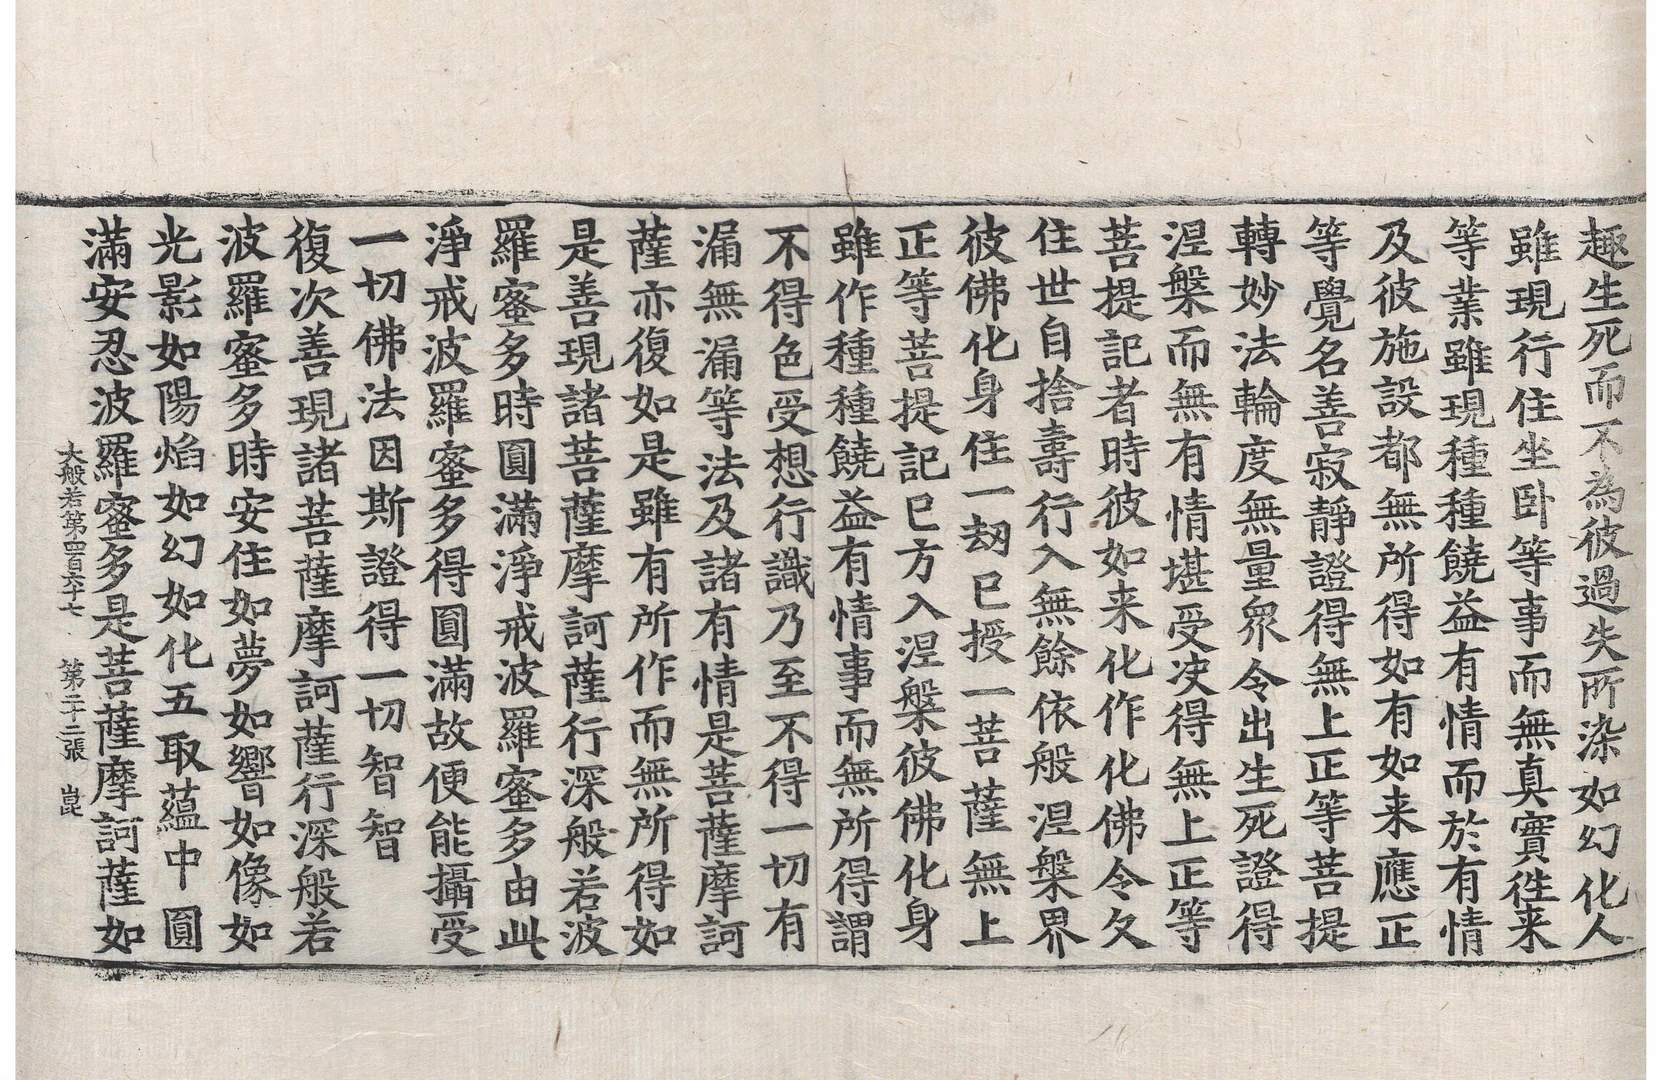 趣生死而不為彼過失所染如幻化人
雖現行住坐卧等事而無真實徃来
等業雖現種種饒益有情而於有情
及彼施設都無所得如有如来應正
等覺名善寂靜證得無上正等菩提
轉妙法輪度無量衆令出生死證得
涅槃而無有情堪受决得無上正等
菩提記者時彼如来化作化佛令久
住世自捨壽行入無餘依般涅槃界
彼佛化身住一劫已授一菩薩無上
正等菩提記已方入涅槃彼佛化身
雖作種種饒益有情事而無所得謂
不得色受想行識乃至不得一切有
漏無漏等法及諸有情是菩薩摩訶
薩亦復如是雖有所作而無所得如
是善現諸菩薩摩訶薩行深般若波
羅蜜多時圓滿淨戒波羅蜜多由此
淨戒波羅蜜多得圓滿故便能攝受
一切佛法因斯證得一切智智
復次善現諸菩薩摩訶薩行深般若
波羅蜜多時安住如夢如響如像如
光影如陽焰如幻如化五取蘊中圓
滿安忍波羅蜜多是菩薩摩訶薩如
大般若第四百六十七 第二十二張 崑